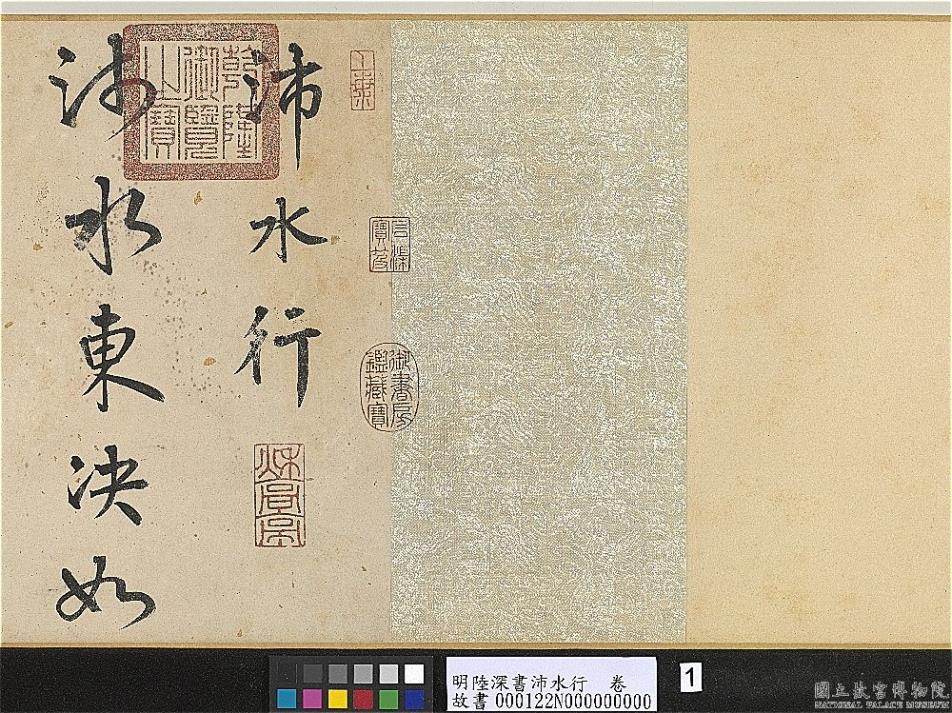 沛水行
沛水東決如
乾隆御覽之寶
石渠寶笈
御書房鑑藏寶
明陸深書沛水行 卷
故書 000122N000000000
1
國立故宮博物院
NATIONAL PALACE MUSEUM